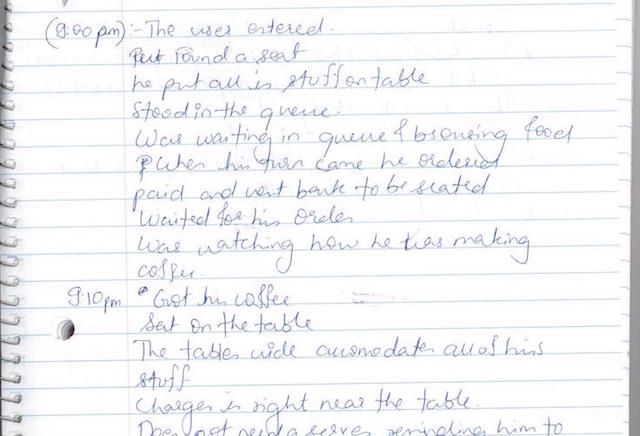 (9:00 pm):- The user entered.
Put Found a seat
he put all is stuff on table
Stood in the queue.
Was waiting in queue & browsing food
When his turn came he ordered
paid and went back to be seated
Waited for his order
Was watching how he was making
coffee.
9:10pm Got his coffee
Sat on the table
The tables wide accomodates all of his
stuff
Charger is right near the table.
Does not need a server reminding him to